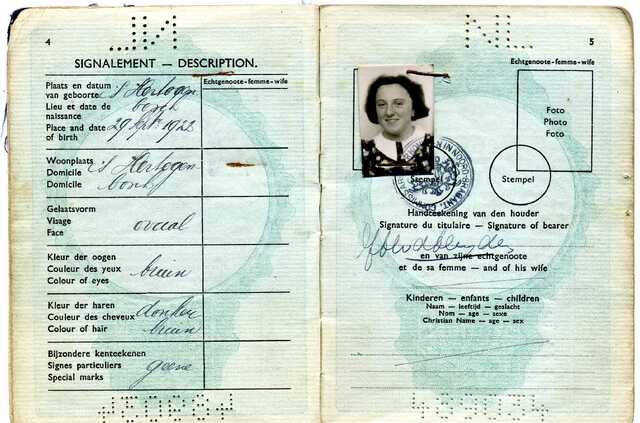 4
SIGNALEMENT — DESCRIPTION.
Echtgenoote-femme-wife
Plaats en datum
van geboorte
Lieu et date de
naissance
Place and date
of birth
's Hertogen
bosch
29 Sept. 1922
Woonplaats
Domicile
Domicile
's Hertogen
bosch
Gelaatsvorm
Visage
Face
ovaal
Kleur der oogen
Couleur des yeux
Colour of eyes
bruin
Kleur der haren
Couleur des cheveux
Colour of hair
donker
bruin
Bijzondere kenteekenen
Signes particuliers
Special marks
geene
NL
5
Echtgenoote-femme-wife
Foto
Photo
Foto
Stempel
Stempel
IN NOORD-BRABANT
Handteekening van den houder
Signature du titulaire — Signature of bearer
en van zijne echtgenoote
et de sa femme — and of his wife
Kinderen — enfants — children
Naam — leeftijd — geslacht
Nom — age — sexe
Christian Name — age — sex